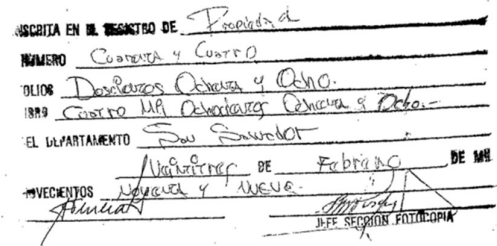 INSCRITA EN EL REGISTRO DE Propiedad
NUMERO Cuarenta y Cuatro
FOLIOS Doscientos Ochenta y Ocho.
LIBRO Cuatro Mil Ochocientos Ochenta y Ocho.-
DEL DEPARTAMENTO San Salvador
Veintitres DE Febrero DE MIL
NOVECIENTOS Noventa y Nueve.
JEFE SECCION FOTOCOPIA